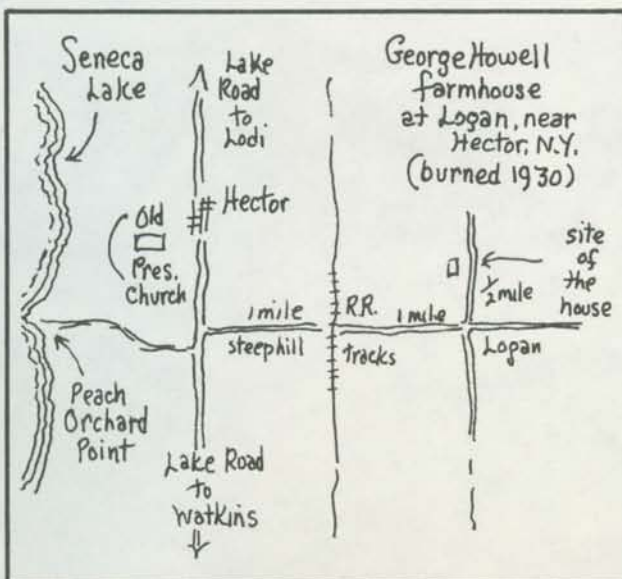 Seneca
Lake
Lake
Road
to
Lodi
George Howell
farmhouse
at Logan, near
Hector, N.Y.
(burned 1930)
Hector
Old
Pres.
Church
site
of
the
house
1/2 mile
1 mile
R.R.
1 mile
steep hill
tracks
Logan
Peach
Orchard
Point
Lake Road
to
Watkins